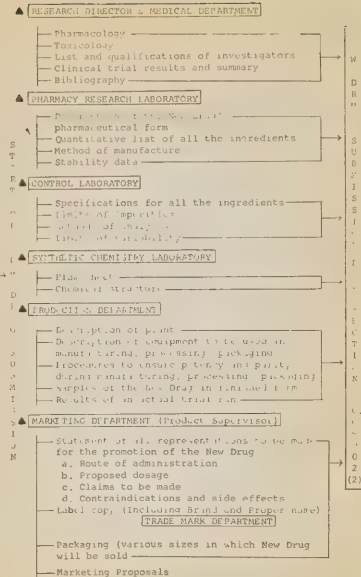 RESEARCH DIRECTOR & MEDICAL DEPARTMENT
Pharmacology
Toxicology
List and qualifications of investigators
Clinical trial results and summary
Bibliography
PHARMACY RESEARCH LABORATORY
pharmaceutical form
Quantitative list of all the ingredients
Method of manufacture
Stability data
CONTROL LABORATORY
Specifications for all the ingredients
Limits of impurities
SYNTHETIC CHEMISTRY LABORATORY
Flow sheet
Chemical structure
PRODUCTION DEPARTMENT
Description of plant
Description of equipment to be used in
manufacturing, processing, packaging
Procedures to ensure potency and purity
during manufacturing, processing, packaging
Samples of the New Drug in finished form
Results of an actual trial run
MARKETING DEPARTMENT (Product Supervisor)
Statement of all representations to be made
for the promotion of the New Drug
a. Route of administration
b. Proposed dosage
c. Claims to be made
d. Contraindications and side effects
Label copy (Including Brand and Proper name)
TRADE MARK DEPARTMENT
Packaging (various sizes in which New Drug
will be sold
Marketing Proposals